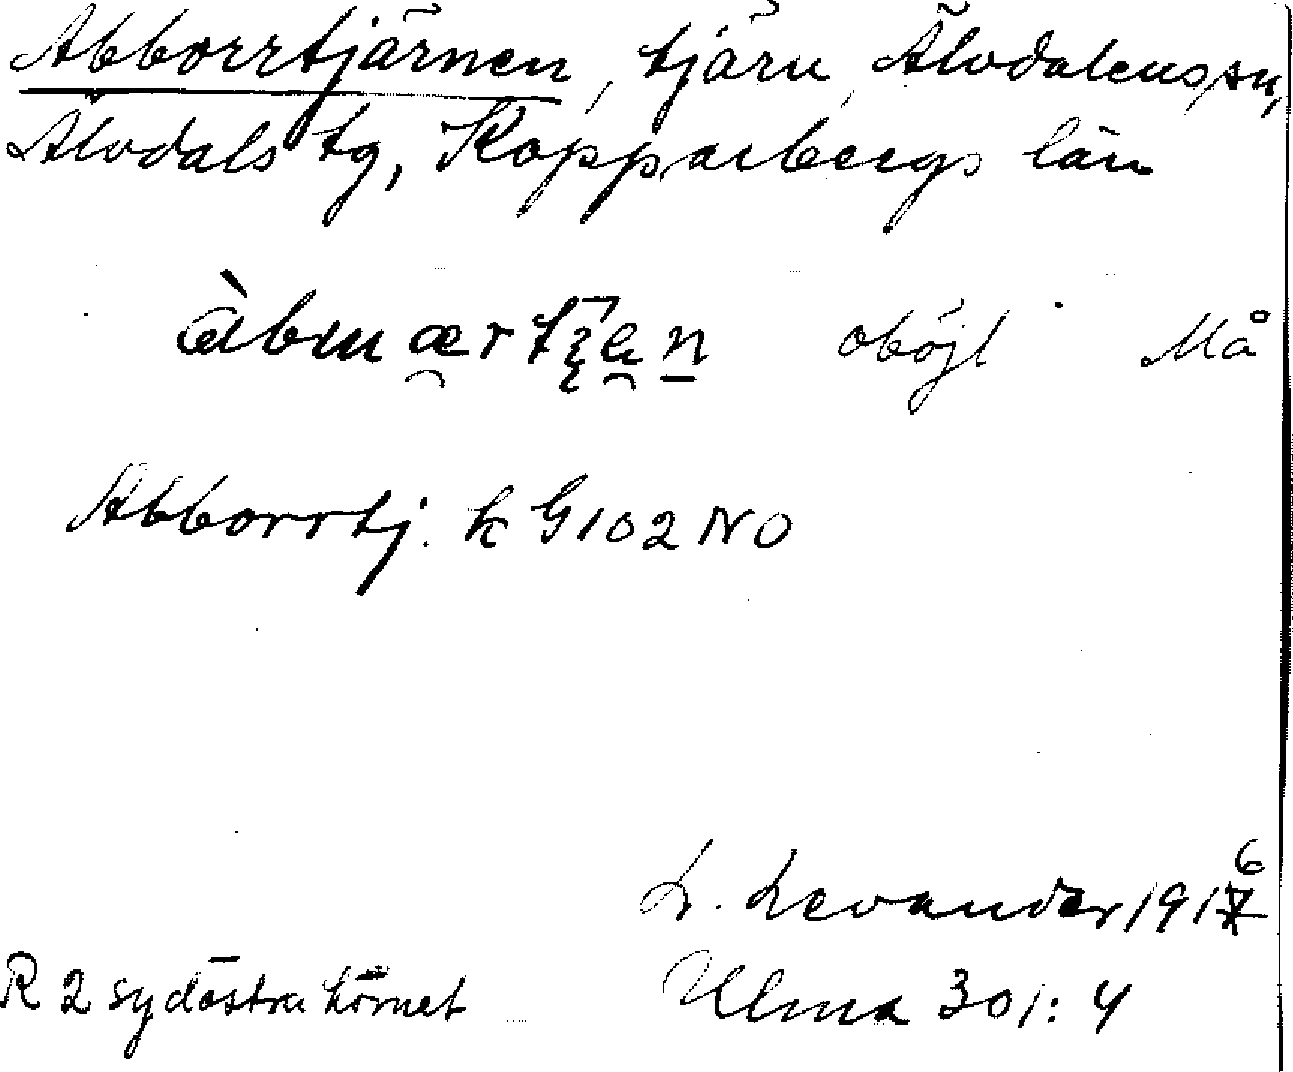 Abborrtjärnen, tjärn, Älvdalens sn,
Älvdals tg, Kopparbergs län
oböjl Må
Abborrtj. k G 102 NO
6
L. Levander 1917
R 2 sydöstra hörnet Ulma 301:4